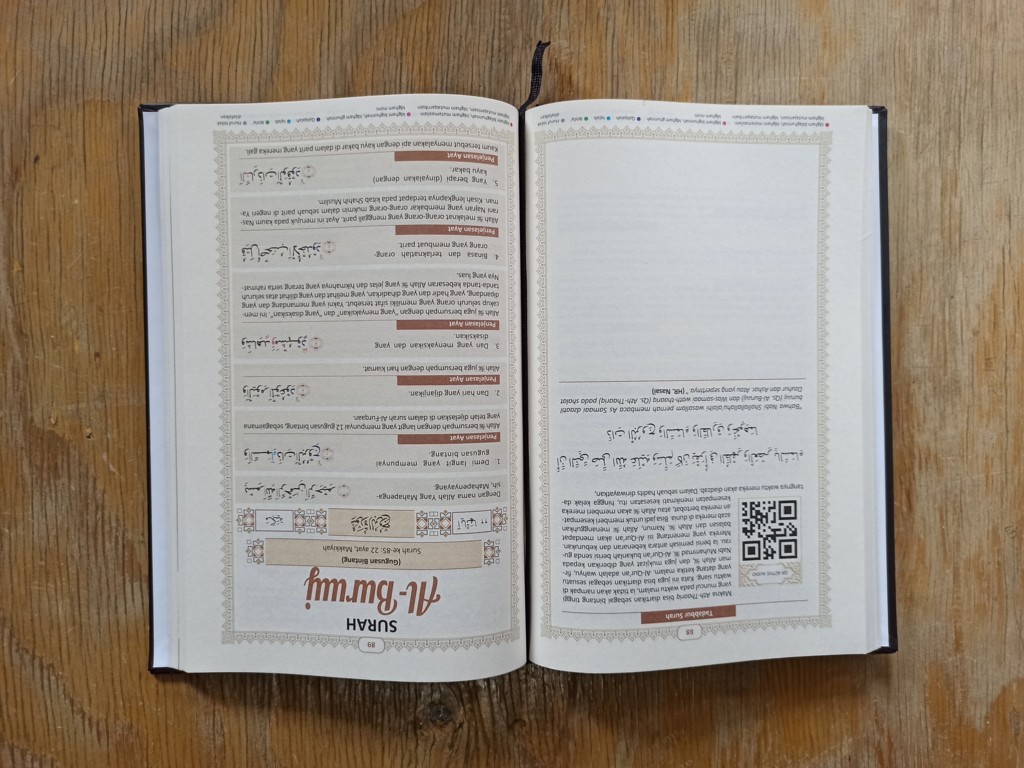 88
Tadabbur Surah
QR MUROTTAL AUDIO
Makna Ath-Thaariq bisa diartikan sebagai bintang tinggi
muncul pada waktu malam, ia tidak akan nampak di
waktu siang. Kata ini juga bisa diartikan sebagai sesuatu
yang datang ketika malam. Al-Qur'an adalah wahyu, fir-
man Allah ﷻ, dan juga mukjizat yang diberikan kepada
Nabi Muhammad ﷺ. Al-Qur'an bukanlah berisi senda gu-
rau. Ia berisi pemisah antara kebenaran dan kebatilan.
Mereka yang menentang isi Al-Qur'an akan mendapat
balasan dari Allah ﷻ. Namun, Allah ﷻ menangguhkan
azab mereka di dunia. Bisa jadi untuk memberi kesempat-
an mereka bertobat, atau Allah ﷻ akan memberi mereka
kesempatan menikmati kesesatan itu, hingga kelak da-
tangnya waktu mereka akan diadzab. Dalam sebuah hadis diriwayatkan,
أَنَّ النَّبِيَّ صَلَّى اللهُ عَلَيْهِ وَسَلَّمَ كَانَ يَقْرَأُ فِي الظُّهْرِ وَالْعَصْرِ بِالسَّمَاءِ
ذَاتِ الْبُرُوجِ وَالسَّمَاءِ وَالطَّارِقِ وَنَحْوِهِمَا
"Bahwa Nabi Shallallahu'alaihi wasallam pernah membaca As Samaai dzaatil
buruuj (Qs. Al-Buruuj) dan Was-samaai wath-thaariq (Qs. Ath-Thaariq) pada shalat
Dzuhur dan Ashar. Atau yang sepertinya." (HR. Nasai)
89
SURAH
Al-Buruuj
(Gugusan Bintang)
Surah ke-85: 22 ayat, Makkiyah
آياتها ٢٢
سورة البروج
مكية
Dengan nama Allah Yang Mahapenga-
sih, Mahapenyayang.
بِسْمِ اللهِ الرَّحْمٰنِ الرَّحِيْمِ
1. Demi langit yang mempunyai
gugusan bintang.
وَالسَّمَاۤءِ ذَاتِ الْبُرُوْجِ
Penjelasan Ayat
Allah ﷻ bersumpah dengan langit yang mempunyai 12 gugusan bintang, sebagaimana
yang telah dijelaskan di dalam surah Al-Furqaan.
2. Dan hari yang dijanjikan.
وَالْيَوْمِ الْمَوْعُوْدِ
Penjelasan Ayat
Allah ﷻ juga bersumpah dengan hari kiamat.
3. Dan yang menyaksikan dan yang
disaksikan.
وَشَاهِدٍ وَّمَشْهُوْدٍ
Penjelasan Ayat
Allah ﷻ juga bersumpah dengan "Yang menyaksikan" dan "yang disaksikan". Ini men-
cakup seluruh orang yang memiliki sifat tersebut. Yakni yang memandang dan yang
dipandang, yang hadir dan yang dihadirkan, yang melihat dan yang dilihat atas seluruh
tanda-tanda kebesaran Allah ﷻ yang jelas dan hikmahnya yang terang serta rahmat-
Nya yang luas.
4. Binasa dan terlaknatlah orang-
orang yang membuat parit
قُتِلَ اَصْحٰبُ الْاُخْدُوْدِ
Penjelasan Ayat
Allah ﷻ melaknat orang-orang yang menggali parit. Ayat ini merujuk pada kaum Nas-
rani Najran yang membakar orang-orang mukmin dalam sebuah parit di negeri Ya-
man. Kisah lengkapnya terdapat pada kitab Shahih Muslim.
5. Yang berapi (dinyalakan dengan)
kayu bakar.
النَّارِ ذَاتِ الْوَقُوْدِ
Penjelasan Ayat
Kaum tersebut menyalakan api dengan kayu di bakar dalam parit yang mereka gali.